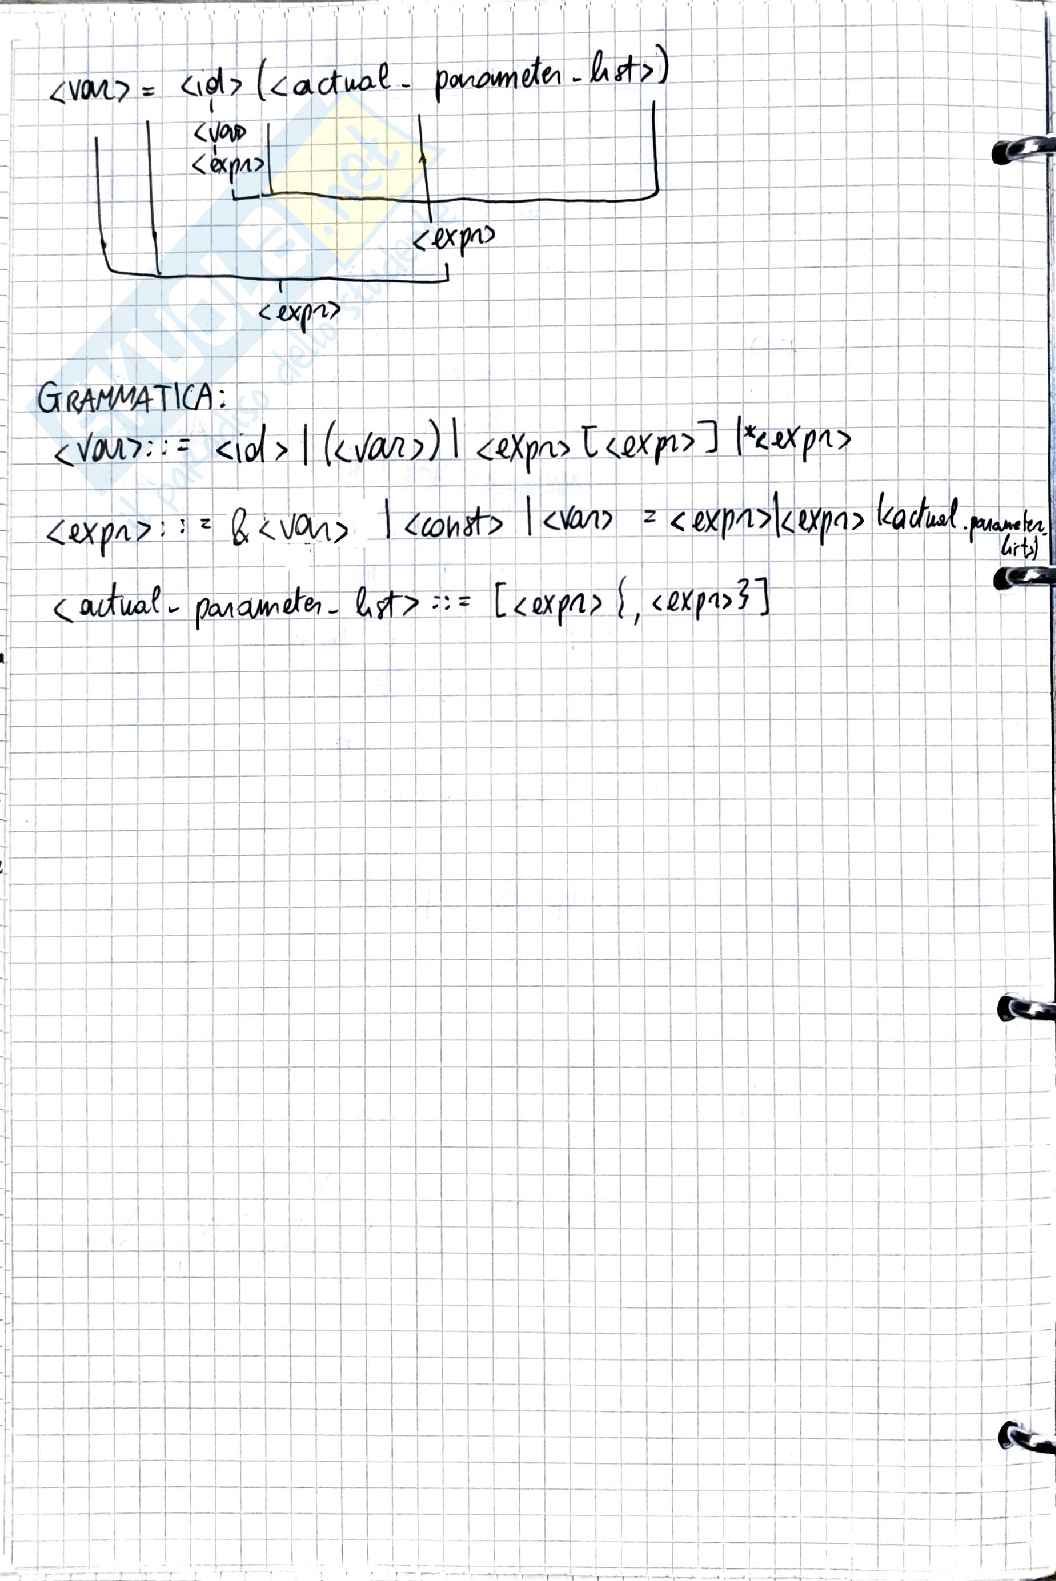 <var> = <id> (<actual - parameter - list>)
<var>
<expr>
<expr>
<expr>
GRAMMATICA:
<var>::= <id> | (<var>) | <expr> [<expr>] | *<expr>
<expr>::= &<var> | <const> | <var> = <expr> | <expr> (<actual.parameter-
lists)
<actual - parameter - list> ::= [<expr> {, <expr>}]
SKUOLA.net
il paradiso dello studente